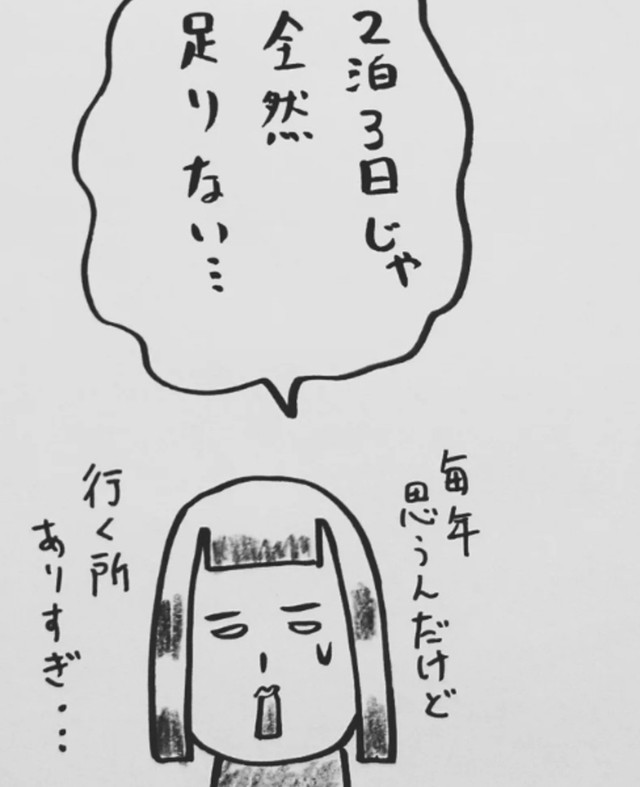 2泊3日じゃ
全然
足りない…
毎年
思うんだけど
行く所
ありすぎ・・・